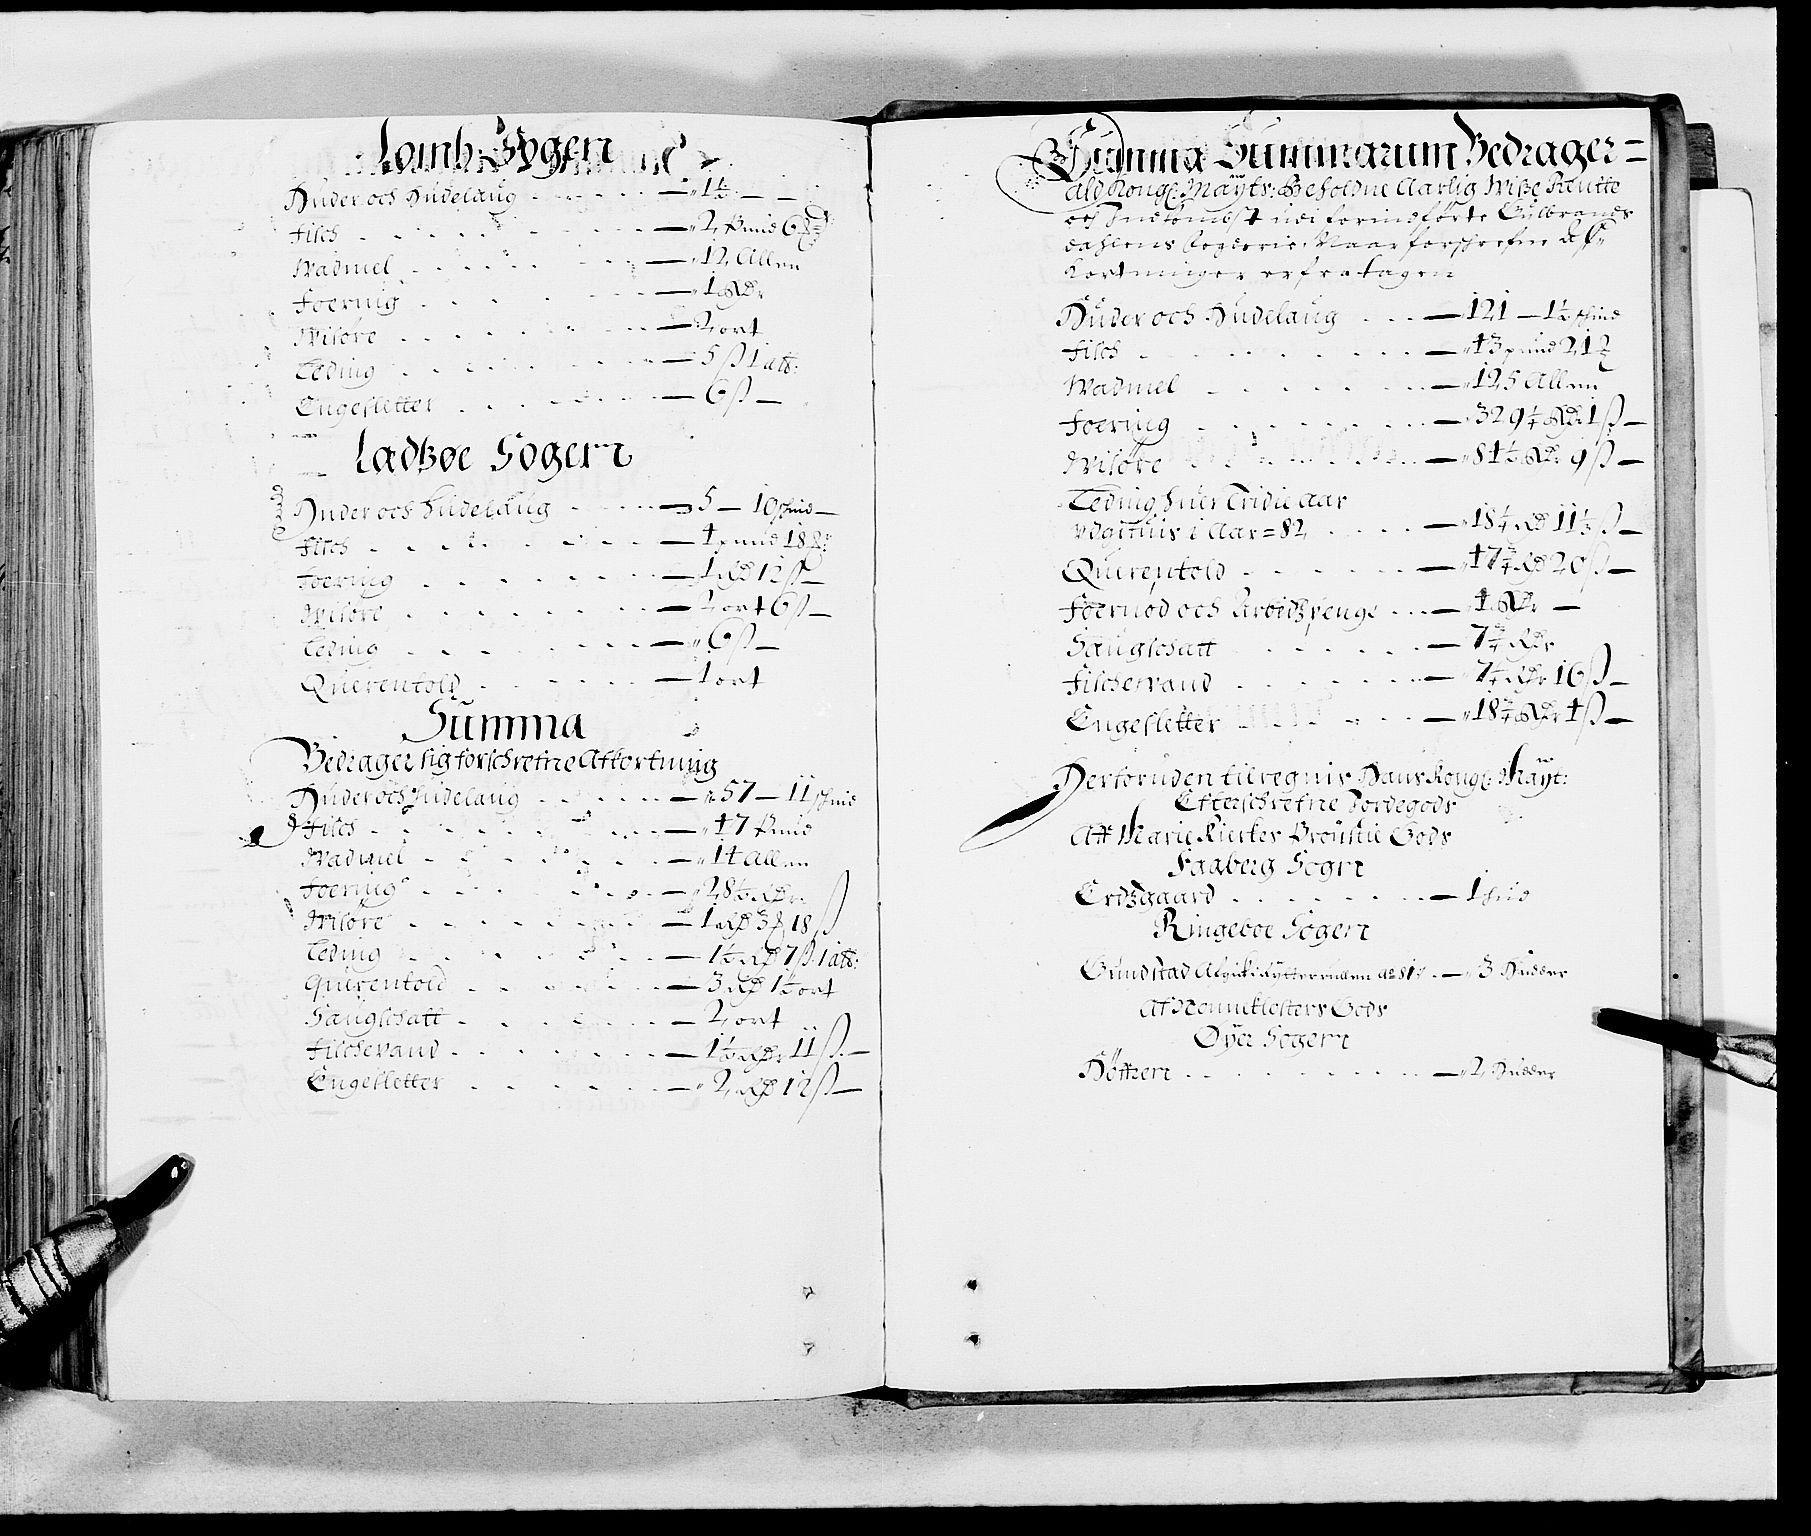 Lomb Sogen
Huder och Hudelaug - - - - - — 1½ - -
Fisch - - - - - — 2 Pund 6
Wadmel - - - - - — 12 Allen
Foering - - - - - — 1 Rdr
Wisöre - - - - - — 2 ort
Leding - - - - - — 5 ß 1 alb:
Engesletter - - - - - — 6 ß —
Ladßøe Sogen
Huder och Hudelaug - - - - — 5 — 10 schind —
Fisch - - - - - — 4 pund 18
Foering - - - - - — 1 Rd 12 ß —
Wisöre - - - - - — 2 ort 6 ß —
Leding - - - - - — 6 ß —
Querentold - - - - - — 1 ort
Summa
Bedrager sig forschrefne Afkortning
Huder och Hudelaug - - - - — 57 — 11 schind
Fisch - - - - - — 47 Pund
Wadmel - - - - - — 14 Allen
Foering - - - - - — 28½ Rdr
Wisöre - - - - - — 1 Rd 3 18 ß
Leding - - - - - — 1½ Rd 7 ß 1 alb:
Querentold - - - - - — 3 Rd 1½ ort
Saugschatt - - - - - — 2 ort
Fischevand - - - - - — 1½ Rdr 11 ß —
Engesletter - - - - - — 2 Rd 12 ß —
Summa Summarum Bedrager =
ald Kongl: Mayts: Beholdne Aarlig Wiße Rentte
och Indkombst udi forindførte Gulbrands
dahlens fogderie. Naar forschrefne af
kortninger er fratagen
Huder och Hudelaug - - - — 121 — 1½ schind
Fisch - - - - - — 43 pund 21½
Wadmel - - - - - — 125 Allen
Foering - - - - - — 329¼ Rdr 1 ß —
Wisöre - - - - - — 84½ Rdr 9 ß —
Leding huer Tridie Aar
udgifuis i Aar = 82 - - - — 18¼ Rd 11½ ß —
Querentold - - - - - — 47¾ Rd 20 ß —
Foernød och Arbeidzpenge - - - — 4 Rdr —
Saugschatt - - - - - — 7¾ Rdr
Fischevand - - - - - — 7¼ Rdr 16 ß —
Engesletter - - - - - — 18¾ Rdr 4 ß —
Herforuden tilregnis Hans Kongl: Mayt:
Efterschrefne Jordegods
Aff Marie Kierkes Prousti Gods
Faaberg Sogn
Erdzgaard - - - - - — 1 hud
Ringeboe Sogen
Gundstad - — 3 Hudder
Af Nonneklosters Gods
Øyer Sogen
Høffren - - - - - — 2 Hudder